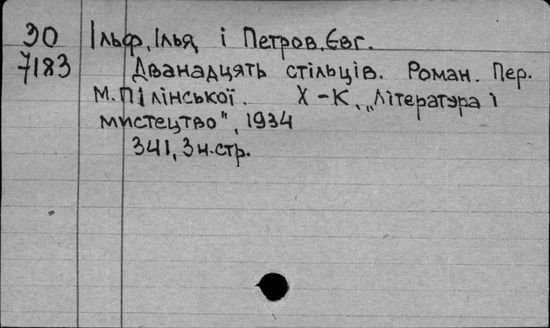 30 Ільф, Ілья і Петров, Євг.
7183 Дванадцять стільців. Роман. Пер.
М. Пілінської. Х–К, „Література і
мистецтво", 1934
341, 3 н. стр.